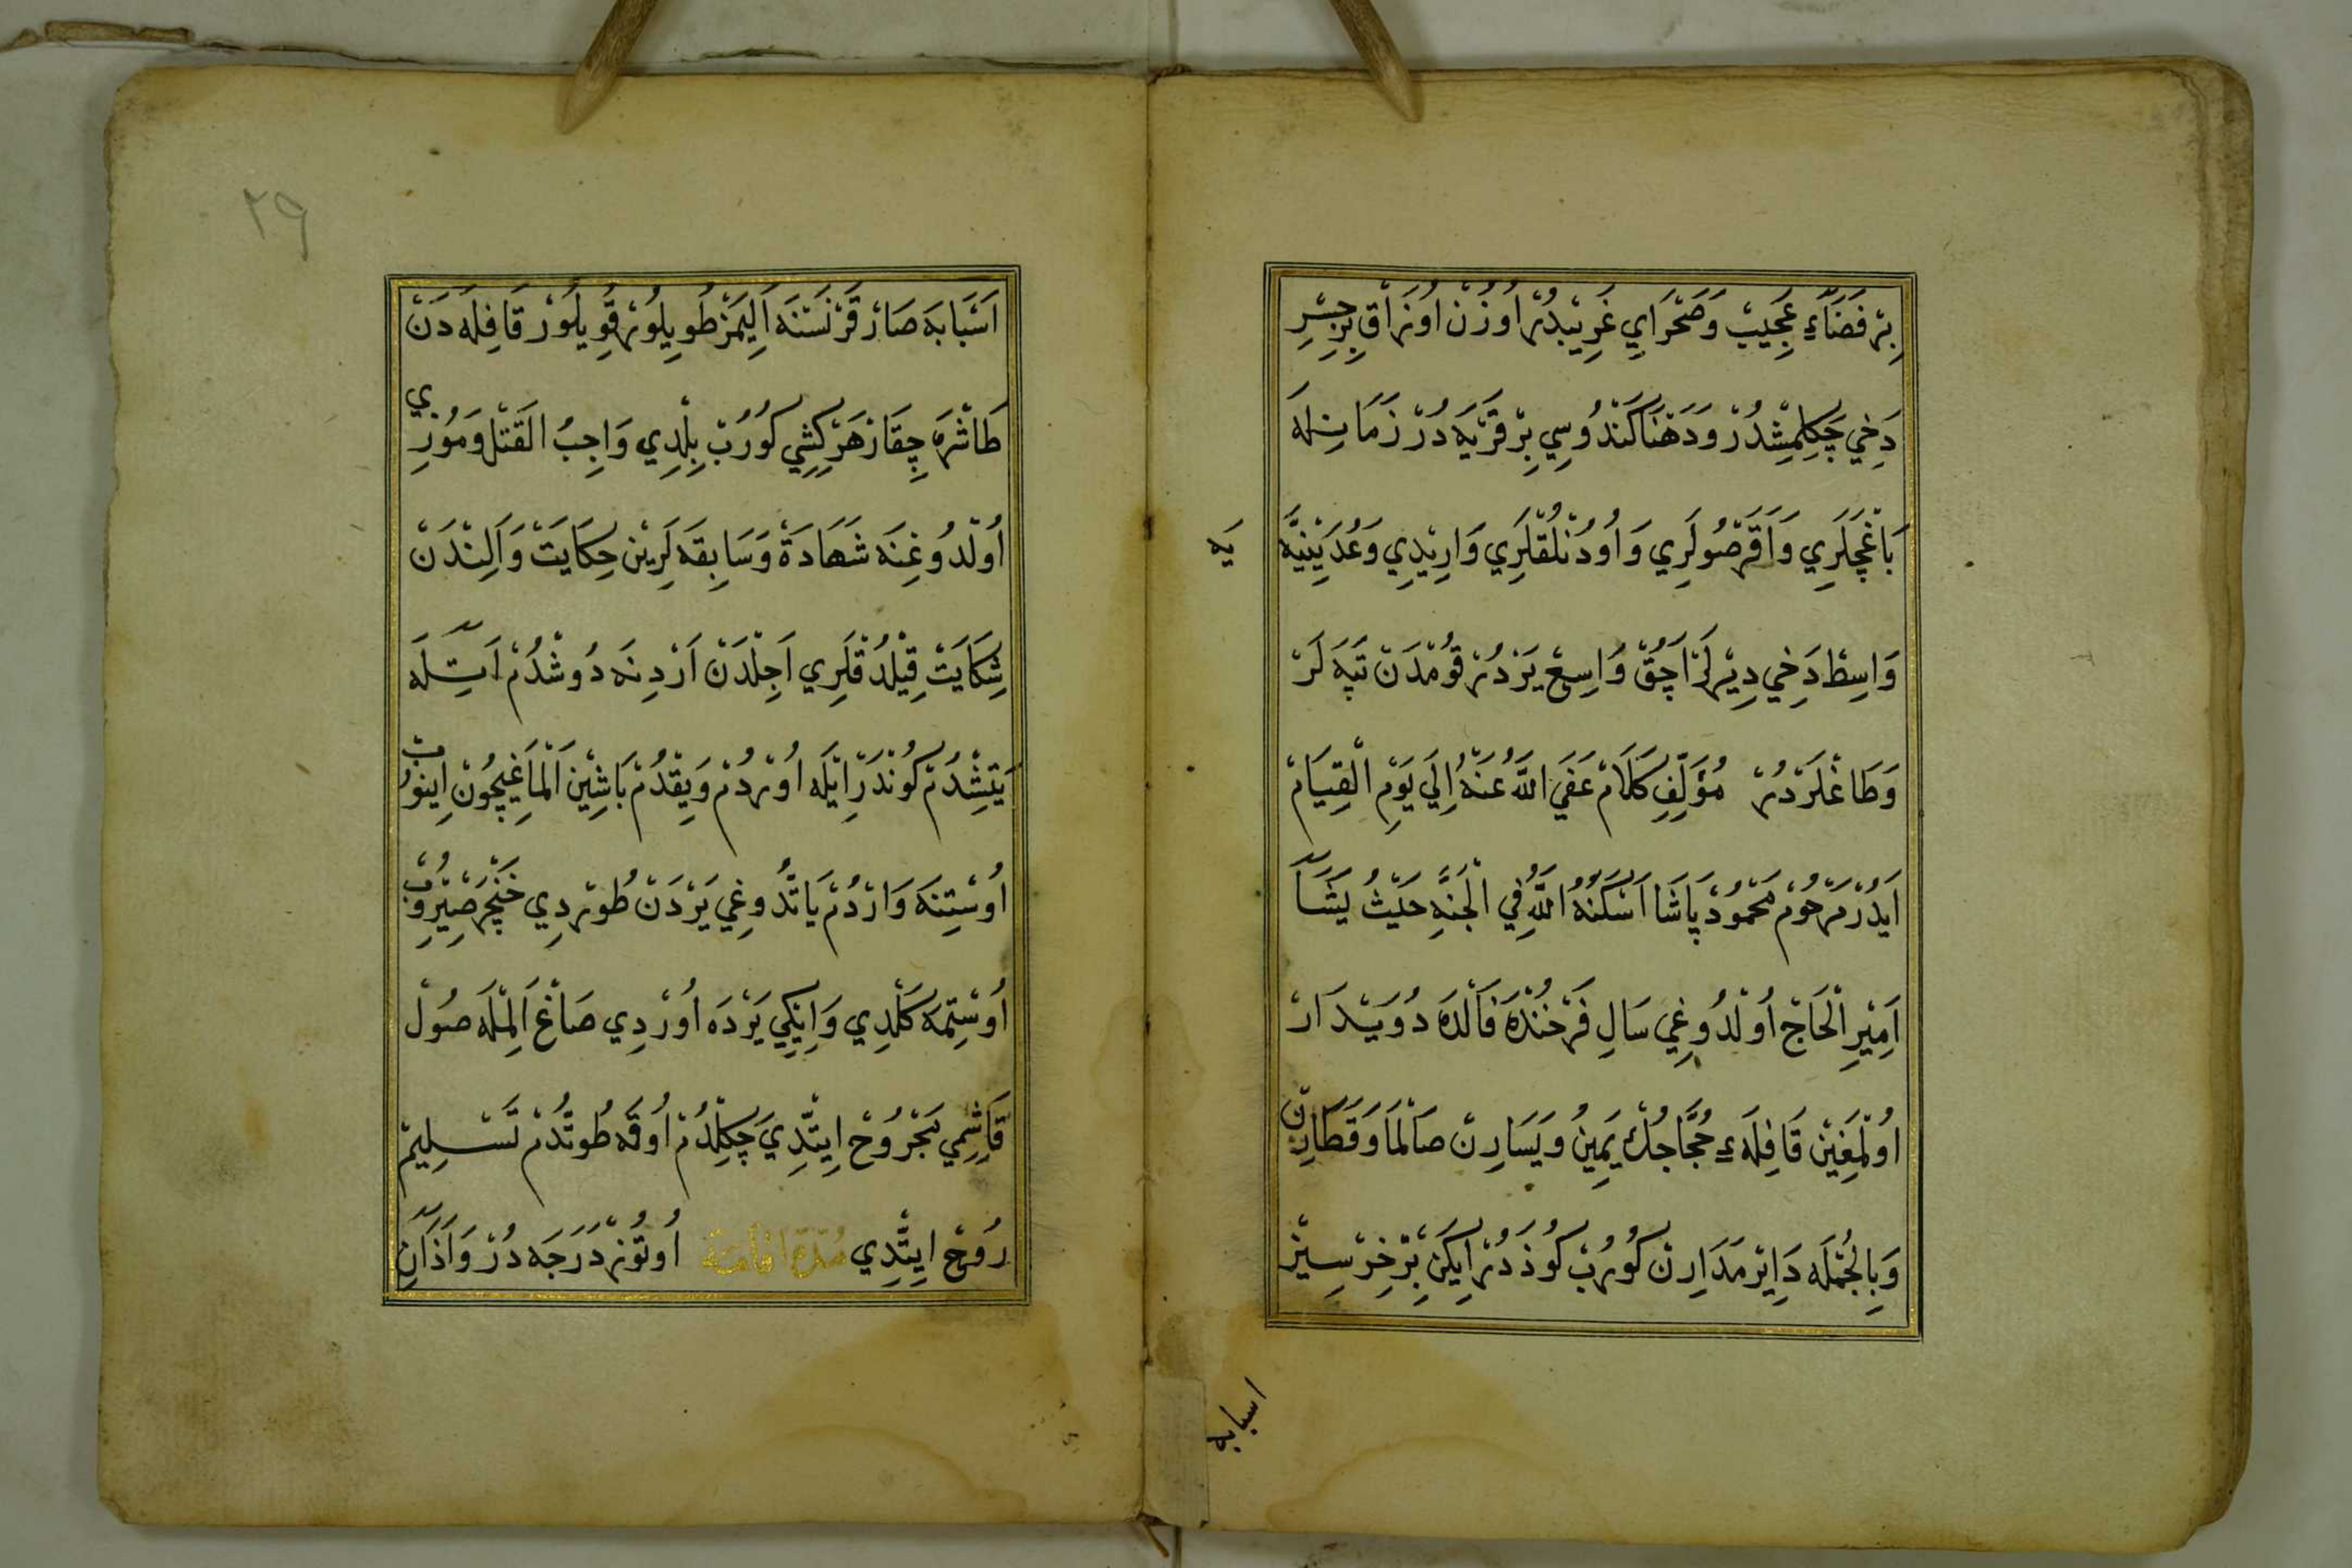 بِرْ فَضَاءِ عَجِيبْ وَصَحْرَايِ غَرِيبْدُرْ اُوزُنْ اُوزَاقْ بِرْ جِسْرِ
دَخِي چَكِلْمِشْدُرْ وَدَهْنَا كَنْدُوسِي بِرْ قَرْيَه دُرْ زَمَانِلَه
بَاغْچَلَرِي وَاَقَرْصُولَرِي وَاُودُنْلُقْلَرِي وَارِيدِي وَعُدَيْنِيَّه
يَه
وَاسِطْ دَخِي دِيرْلَرْ اَچُقْ وَاسِعْ يَرْدُرْ قُومْدَنْ تَپَه لَرْ
وَطَاغْلَرْدُرْ مُؤَلِّفِ كَلَامْ عَفَي اللّٰهُ عَنْهُ اِلَي يَوْمِ الْقِيَامْ
اَيْدُرْ مَرْحُومْ مَحْمُودْ پَاشَا اَسْكَنَهُ اللّٰهُ فِي الْجَنَّهِ حَيْثُ يَشَآ
اَمِيرِ الْحَاجْ اُولْدُوغِي سَالِ فَرْخُنْدَه فَالْدَه دُوَيْدَارْ
اُولْمَغِينْ قَافِلَهءِ حُجَّاجُكْ يَمِينُ وَيَسَارِنْ صَالْمَا وَقَطَارِنْ
وَبِالْجُمْلَه دَايِرْ مَدَارِنْ كُورُبْ كُوزْدُرْ اِيكَنْ بِرْ خِرْسِيزْ
اسبابه
٢٩
اَسْبَابَه صَارْقَرْ نَسْنَه اَلِيمَزْ طُويِلُورْ قُويِلُورْ قَافِلَه دَنْ
طَاشْرَه چِقَارْ هَرْ كِشِي كُورُبْ بِلْدِي وَاجِبُ الْقَتْل وَمُوزِي
اُولْدُوغِنَه شَهَادَة وَسَابِقَه لَرِينْ حِكَايَتْ وَاَلِنْدَنْ
شِكَايَتْ قِيلْدُقْلَرِي اَجِلْدَنْ اَرْدِنَه دُوشْدُمْ اَتِلَه
يَتِشْدُمْ كُونْدَرْ اِيلَه اُورْدُمْ وَيِقْدُمْ بَاشِينْ اَلْمَاغِيچُونْ اِينُوبْ
اُوسْتِنَه وَارْدُمْ يَاتْدُوغِي يَرْدَنْ طُورْدِي خَنْچَرْ صِيِرُوبْ
اُوسْتِمَه كَلْدِي وَاِيكِي يَرْدَه اُورْدِي صَاغْ اَلِمْلَه صُولْ
قَاشِمِي مَجْرُوحْ اِيتْدِي چَكِلْدُمْ اُوقَه طُوتْدُمْ تَسْلِيمْ
رُوحْ اِيتْدِي مُدَّة اقامة اُوتُوزْ دَرَجَه دُرْ وَاَذَانِ